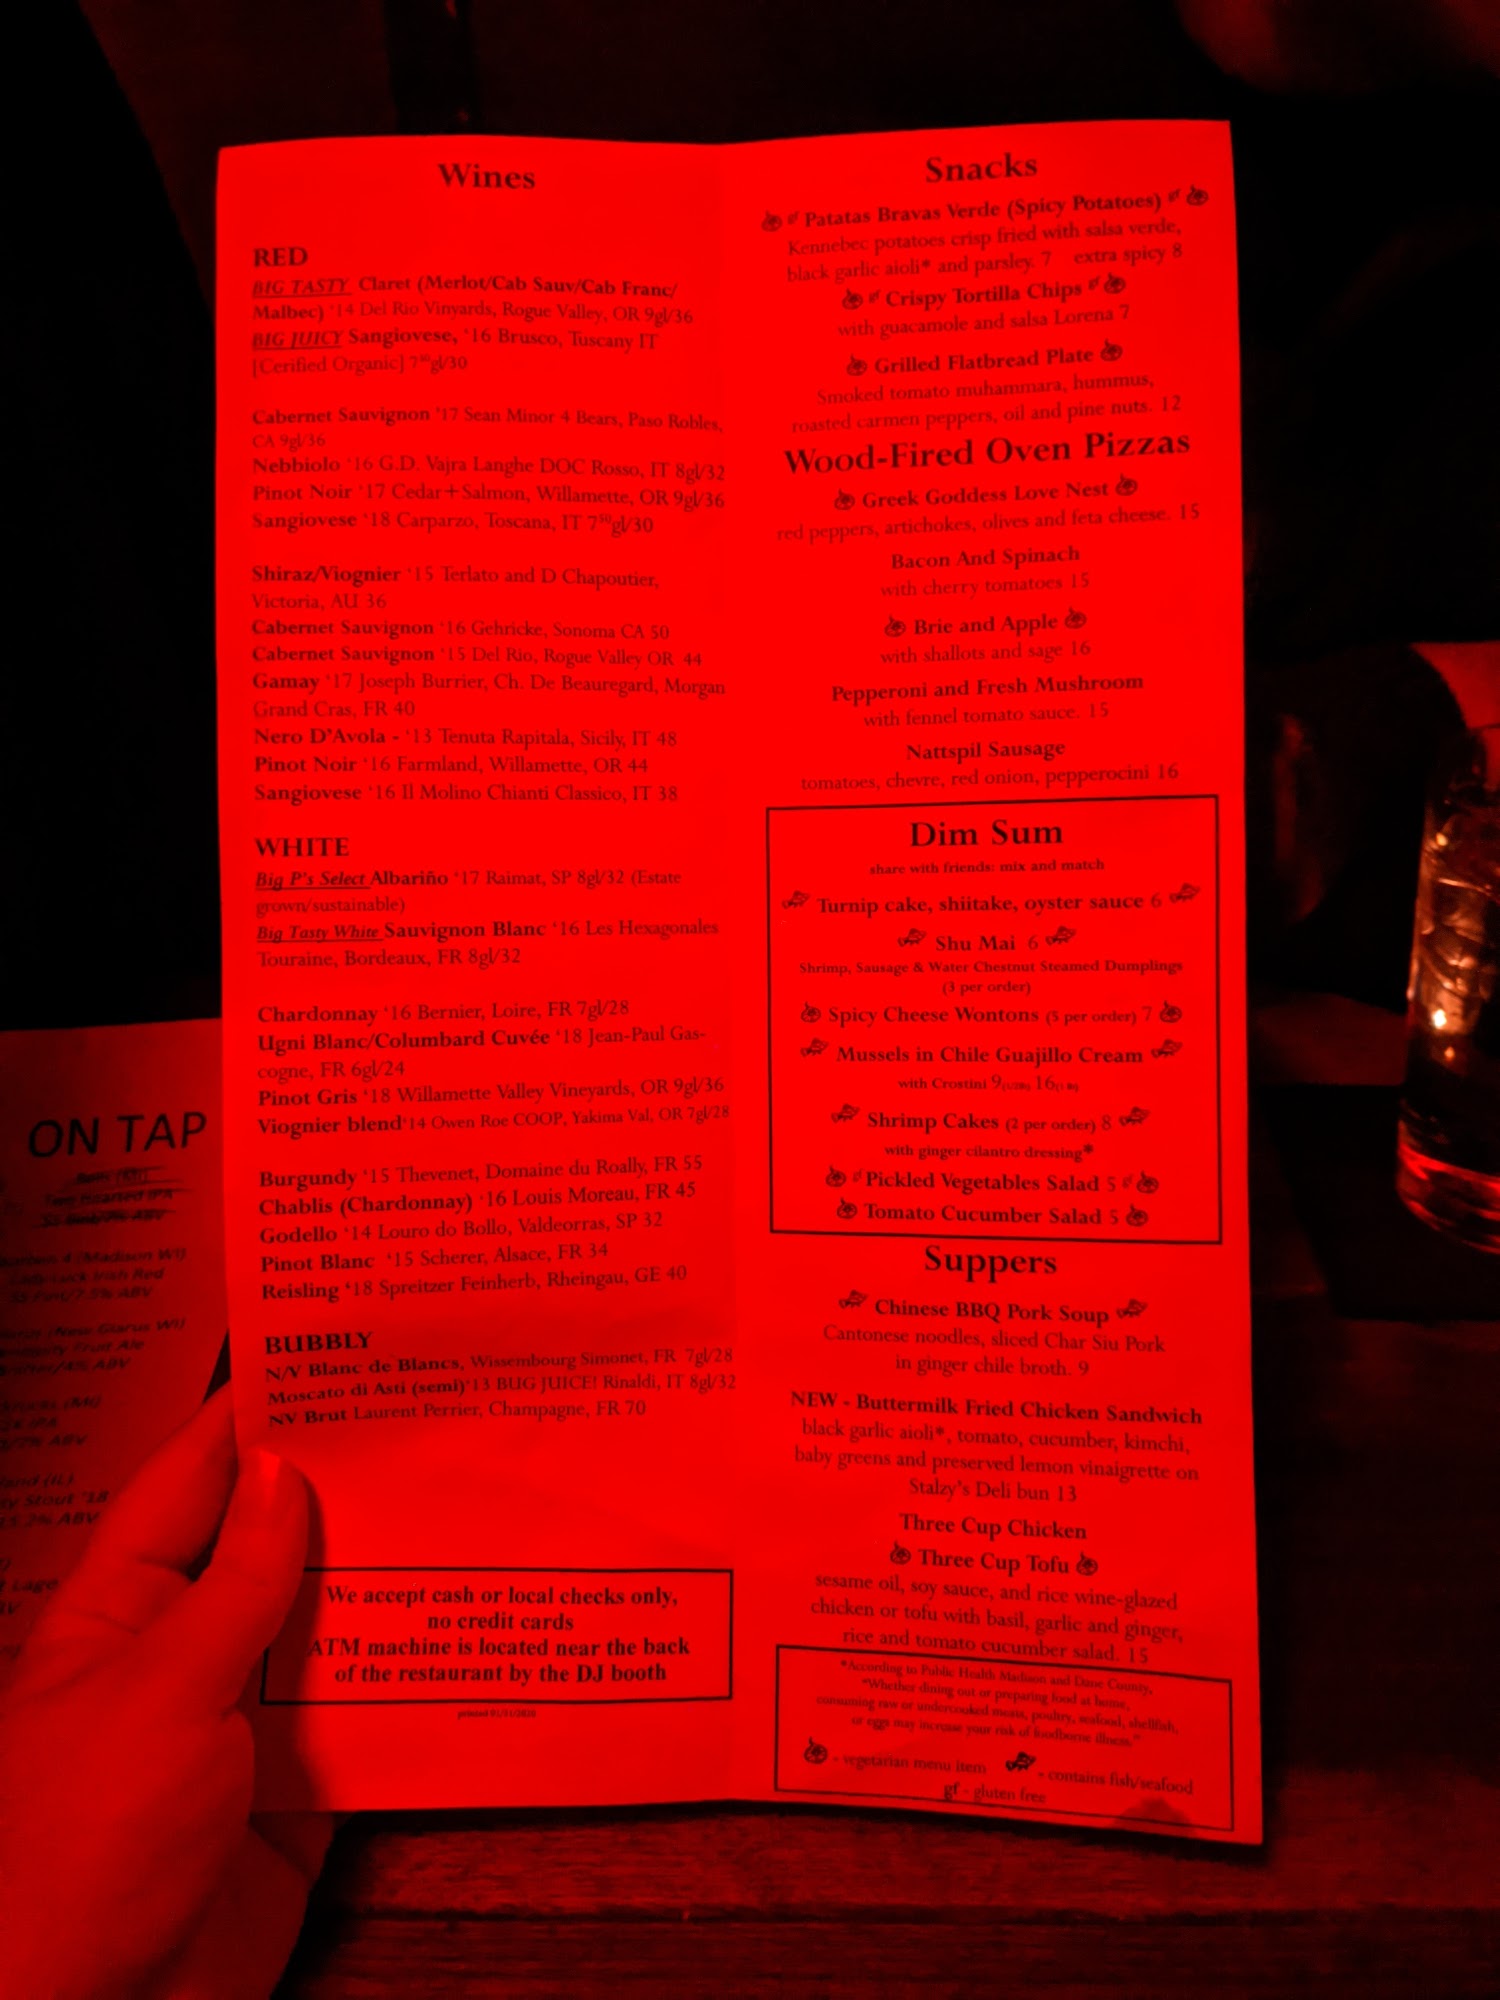 Wines
RED
BIG TASTY Claret (Merlot/Cab Sauv/Cab Franc/
Malbec) '14 Del Rio Vinyards, Rogue Valley, OR 9gl/36
BIG JUICY Sangiovese, '16 Brusco, Tuscany IT
[Cerified Organic] 7⁵⁰gl/30
Cabernet Sauvignon '17 Sean Minor 4 Bears, Paso Robles,
CA 9gl/36
Nebbiolo '16 G.D. Vajra Langhe DOC Rosso, IT 8gl/32
Pinot Noir '17 Cedar+Salmon, Willamette, OR 9gl/36
Sangiovese '18 Carparzo, Toscana, IT 7⁵⁰gl/30
Shiraz/Viognier '15 Terlato and D Chapoutier,
Victoria, AU 36
Cabernet Sauvignon '16 Gehricke, Sonoma CA 50
Cabernet Sauvignon '15 Del Rio, Rogue Valley OR 44
Gamay '17 Joseph Burrier, Ch. De Beauregard, Morgan
Grand Cras, FR 40
Nero D'Avola - '13 Tenuta Rapitala, Sicily, IT 48
Pinot Noir '16 Farmland, Willamette, OR 44
Sangiovese '16 Il Molino Chianti Classico, IT 38
WHITE
Big P's Select Albariño '17 Raimat, SP 8gl/32 (Estate
grown/sustainable)
Big Tasty White Sauvignon Blanc '16 Les Hexagonales
Touraine, Bordeaux, FR 8gl/32
Chardonnay '16 Bernier, Loire, FR 7gl/28
Ugni Blanc/Columbard Cuvée '18 Jean-Paul Gas-
cogne, FR 6gl/24
Pinot Gris '18 Willamette Valley Vineyards, OR 9gl/36
Viognier blend'14 Owen Roe COOP, Yakima Val, OR 7gl/28
Burgundy '15 Thevenet, Domaine du Roally, FR 55
Chablis (Chardonnay) '16 Louis Moreau, FR 45
Godello '14 Louro do Bollo, Valdeorras, SP 32
Pinot Blanc '15 Scherer, Alsace, FR 34
Reisling '18 Spreitzer Feinherb, Rheingau, GE 40
BUBBLY
N/V Blanc de Blancs, Wissembourg Simonet, FR 7gl/28
Moscato di Asti (semi)'13 BUG JUICE! Rinaldi, IT 8gl/32
NV Brut Laurent Perrier, Champagne, FR 70
We accept cash or local checks only,
no credit cards
ATM machine is located near the back
of the restaurant by the DJ booth
printed
Snacks
gf Patatas Bravas Verde (Spicy Potatoes) gf
Kennebec potatoes crisp fried with salsa verde,
black garlic aioli* and parsley. 7 extra spicy 8
gf Crispy Tortilla Chips gf
with guacamole and salsa Lorena 7
Grilled Flatbread Plate
Smoked tomato muhammara, hummus,
roasted carmen peppers, oil and pine nuts. 12
Wood-Fired Oven Pizzas
Greek Goddess Love Nest
red peppers, artichokes, olives and feta cheese. 15
Bacon And Spinach
with cherry tomatoes 15
Brie and Apple
with shallots and sage 16
Pepperoni and Fresh Mushroom
with fennel tomato sauce. 15
Nattspil Sausage
tomatoes, chevre, red onion, pepperocini 16
Dim Sum
share with friends: mix and match
Turnip cake, shiitake, oyster sauce 6
Shu Mai 6
Shrimp, Sausage & Water Chestnut Steamed Dumplings
(3 per order)
Spicy Cheese Wontons (5 per order) 7
Mussels in Chile Guajillo Cream
with Crostini 9(1/2lb) 16(1 lb)
Shrimp Cakes (2 per order) 8
with ginger cilantro dressing*
gf Pickled Vegetables Salad 5 gf
Tomato Cucumber Salad 5
Suppers
Chinese BBQ Pork Soup
Cantonese noodles, sliced Char Siu Pork
in ginger chile broth. 9
NEW - Buttermilk Fried Chicken Sandwich
black garlic aioli*, tomato, cucumber, kimchi,
baby greens and preserved lemon vinaigrette on
Stalzy's Deli bun 13
Three Cup Chicken
Three Cup Tofu
sesame oil, soy sauce, and rice wine-glazed
chicken or tofu with basil, garlic and ginger,
rice and tomato cucumber salad. 15
*According to Public Health Madison and Dane County,
"Whether dining out or preparing food at home,
consuming raw or undercooked meats, poultry, seafood, shellfish,
or eggs may increase your risk of foodborne illness."
- vegetarian menu item - contains fish/seafood
gf - gluten free
ON TAP
Two Hearted IPA
(Madison WI)
Irish Red
$5 Pint/7.5% ABV
(New Glarus WI)
Fruit Ale
ABV
(MI)
IPA
ABV
(IL)
Stout '18
ABV